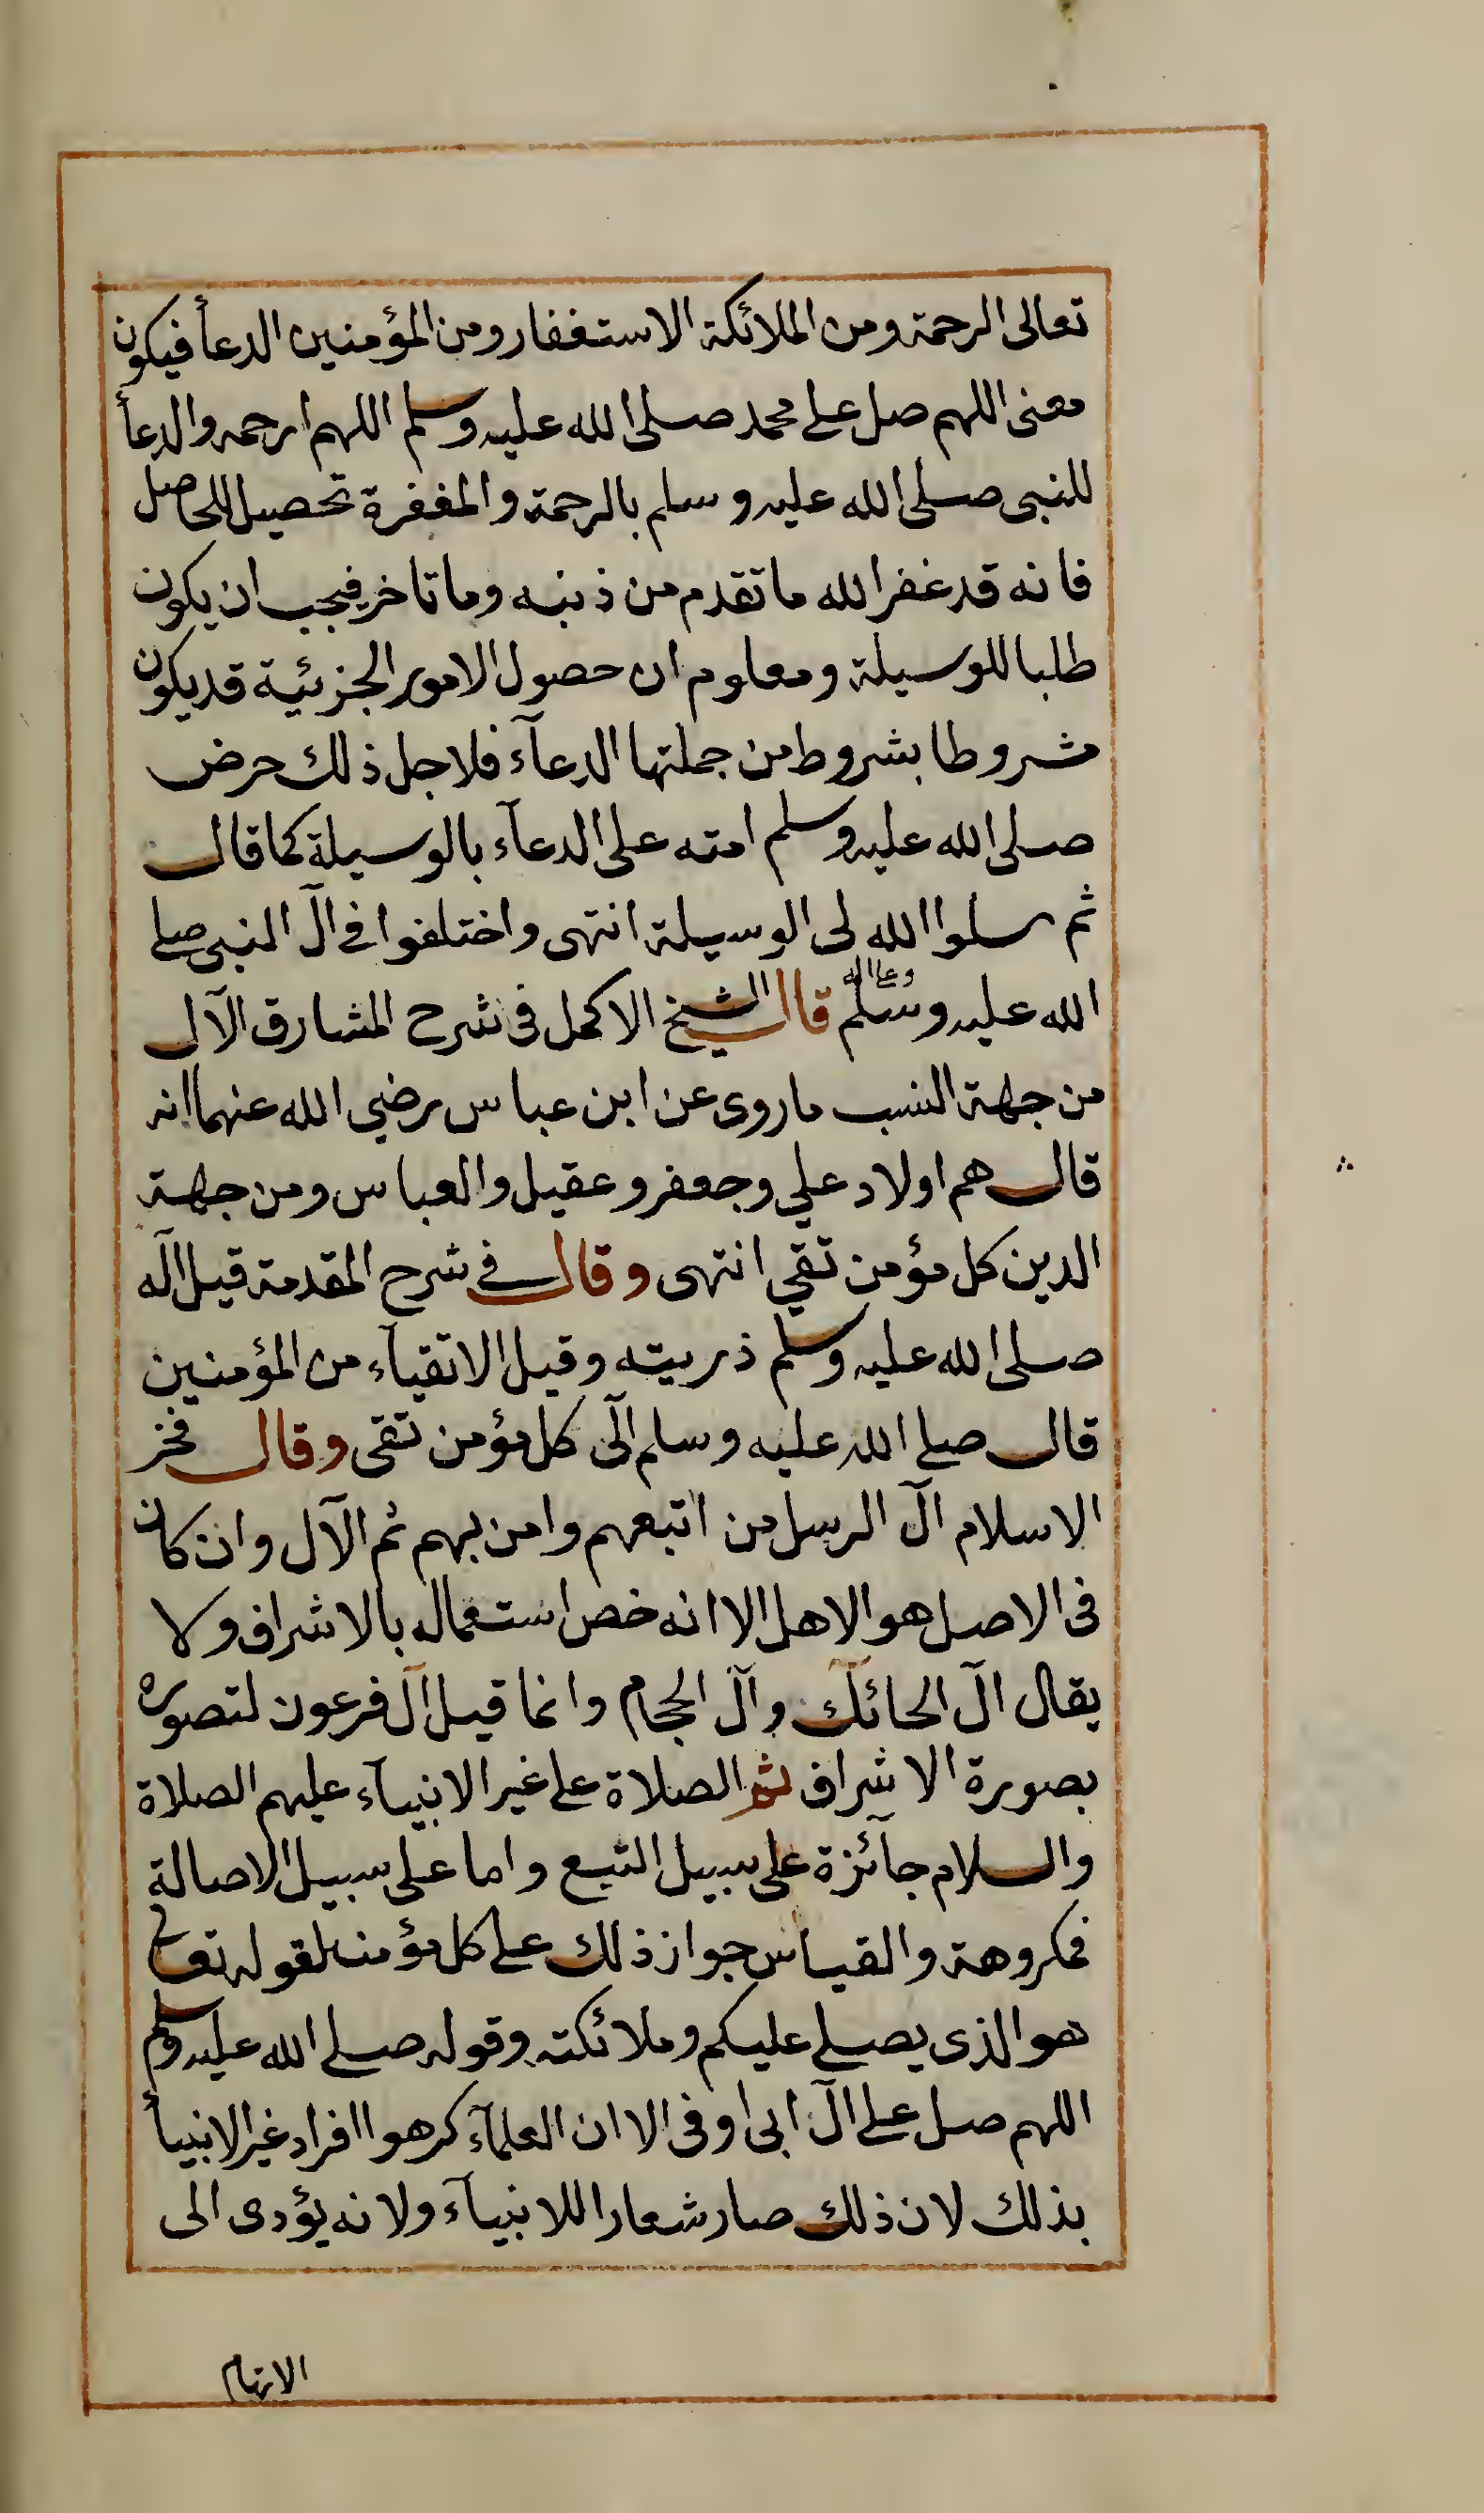 تعالى الرحمة ومن الملائكة الاستغفار ومن المؤمنين الدعأ فيكون
معنى اللهم صل على محمد صلى الله عليه وسلم اللهم ارحمه والدعأ
للنبى صلى الله عليه وسلم بالرحمة والمغفرة تحصيل للحاصل
فانه قد غفر الله ما تقدم من ذنبه وما تاخر فيجب ان يكون
طلبا للوسيلة ومعلوم ان حصول الامور الجزئية قد يكون
مشروطا بشروط من جملتها الدعآء فلاجل ذلك حرض
صلى الله عليه وسلم امته على الدعآء بالوسيلة كما قال
ثم سلوا الله لى الوسيلة انتهى واختلفوا فى آل النبى صلى
وعلى اله
الله عليه وسلم قال الشيخ الاكمل فى شرح المشارق الآل
من جهة النسب ما روى عن ابن عباس رضي الله عنهما انه
قال هم اولاد علي وجعفر وعقيل والعباس ومن جهة
الدين كل مؤمن تقي انتهى وقال فى شرح المقدمة قيل آله
صلى الله عليه وسلم ذريته وقيل الاتقيآء من المؤمنين
قال صلى الله عليه وسلم آلى كل مؤمن تقى وقال فخر
الاسلام آل الرسل من اتبعهم وامن بهم ثم الآل وان كان
فى الاصل هو الاهل الا انه خص استعماله بالاشراف ولا
يقال آل الحائك وآل الحجام وانما قيل آل فرعون لتصوره
بصورة الاشراف ثم الصلاة على غير الانبيآء عليهم الصلاة
والسلام جآئزة على سبيل التبع واما على سبيل الاصالة
فمكروهة والقياس جواز ذلك على كل مؤمن لقوله تعالى
هو الذى يصلى عليكم وملائكته وقوله صلى الله عليه وسلم
اللهم صل على آل ابى اوفى الا ان العلمآء كرهوا افراد غير الانبيأ
بذلك لان ذلك صار شعارا للانبيآء ولانه يؤدى الى
الاتهام